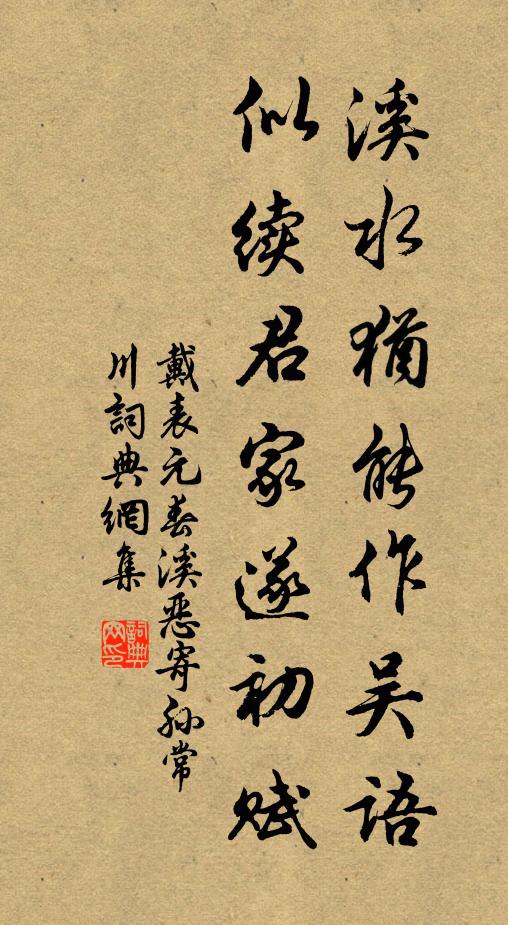 溪水猶能作吴語
似续君家遂初赋
戴表元春溪恶寄孙常
川詞典網集
詞典
网印